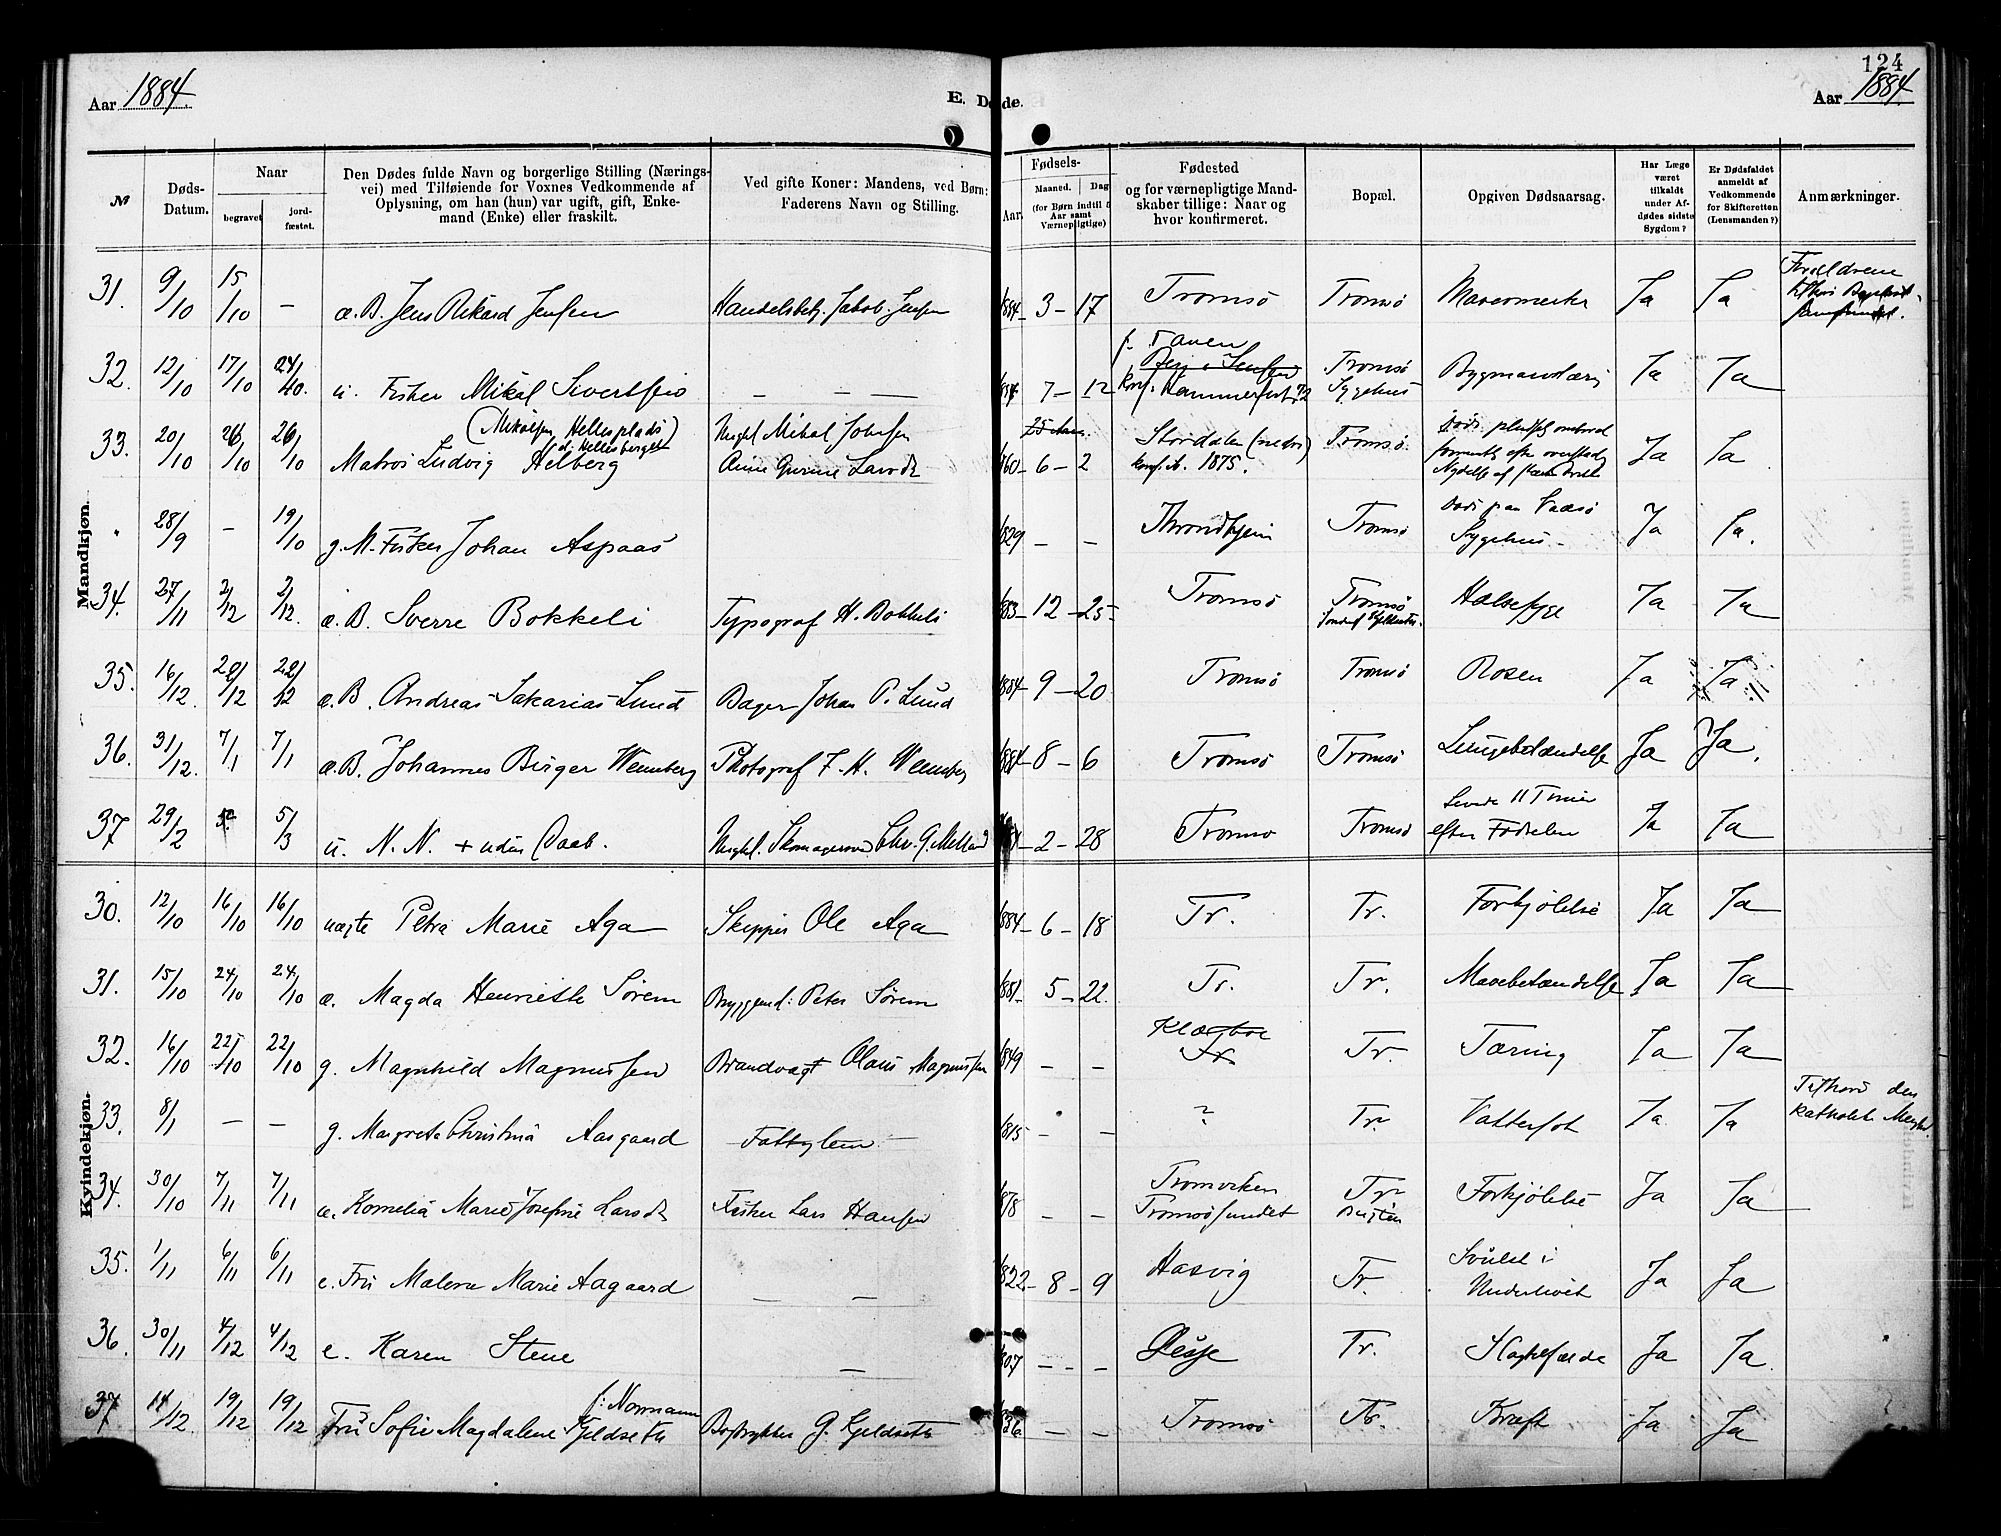 124
Aar 1884.
E. Døde.
Aar 1884.
№
Døds-Datum.
Naar
begravet
jord-fæstet.
Den Dødes fulde Navn og borgerlige Stilling (Nærings-
vei) med Tilføiende for Voxnes Vedkommende af
Oplysning, om han (hun) var ugift, gift, Enke-
mand (Enke) eller fraskilt.
Ved gifte Koner: Mandens, ved Børn:
Faderens Navn og Stilling.
Fødsels-
Aar.
Maaned.
Dag
(for Børn indtil
Aar samt
Værnepligtige)
Fødested
og for værnepligtige Mand-
skaber tillige: Naar og
hvor konfirmeret.
Bopæl.
Opgiven Dødsaarsag.
Har Læge
været
tilkaldt
under Af-
dødes sidste
Sygdom?
Er Dødsfaldet
anmeldt af
Vedkommende
for Skifteretten
(Lensmanden?)
Anmærkninger.
Mandkjøn.
31. 9/10 15/10 — æ. B. Jens Rikard Jensen Jakob Jensen 1884 - 3 - 17 Tromsø Tromsø Ja Ja Forældrene
32. 12/10 17/10 24/10. u. Fisker Mikal Sivertsen — — 7 - 12 Hammerfest 72 Tromsø Sygehus Ja Ja
33. 20/10 26/10 26/10 Matros Ludvig Helberg Ungkl Mikal Johnsen 1860 - 6 - 2 Stordalen konf. 1875. Tromsø Ja Ja
" 28/9 — 19/10 g. M. Fisker Johan Aspaas 1829 — — Throndhjem Tromsø Døde paa Vadsø Sygehus Ja Ja.
34. 27/11 2/12 2/12. æ. B. Sverre Bokkeli Typograf H. Bokkeli 1883 - 12 - 25 Tromsø Tromsø Halssyge Ja Ja
35. 16/12. 22/12 22/12 æ. B. Andreas Sakarias Lund Bager Johan P. Lund 1884 - 9 - 20 Tromsø Tromsø Rosen Ja Ja
36. 31/12. 7/1 7/1 æ. B. Johannes Birger Wennberg Photograf F. H. Wennberg 1884 - 8 - 6 Tromsø Tromsø Lungebetændelse Ja Ja.
37 29/2 5/3 u. N. N. + uden Daab. 2 - 28 Tromsø Tromsø Levede 11 Timer efter Fødselen Ja Ja
Kvindekjøn.
30. 12/10 16/10 16/10 uægte Petra Marie Aga Skipper Ole Aga 1884 - 6 - 18 Tr. Tr. Forkjølelse Ja Ja
31. 15/10 24/10 24/10 æ. Magda Henriette Sørem Peter Sørem 1881 - 5 - 22 Tr. Tr. Mavebetændelse Ja Ja
32. 16/10 22/10 22/10 g. Magnhild Magnussen Brandvagt Olaus Magnussen 1849 — — Klæbo Tr Tr. Tæring Ja Ja
33. 8/1 — — g. Margrete Christina Aasgaard Fattiglem 1815 — — ? Tr. Vattersot Ja Ja Tilhørte den katholske Menighed.
34. 30/10 7/11 7/11 æ. Kornelia Marie Josefine Larsdt Fisker Lars Hansen 1878 — — Tromsøsundet Tr. Forkjølelse Ja Ja
35. 1/11 6/11 6/11 e. Fru Malena Marie Aagaard — — 1822 - 8 - 9 Hasvig Tr. Svulst i Underlivet Ja Ja
36. 30/11 4/12 4/12 e. Karen Stene — 1807 — — Tr. Ja Ja.
37 14/12. 19/12 19/12 Fru Sofie Magdalene Kjeldseth f: Normann Bogtrykker G. Kjeldseth 1836 — — Tromsø Tr. Kræft Ja Ja